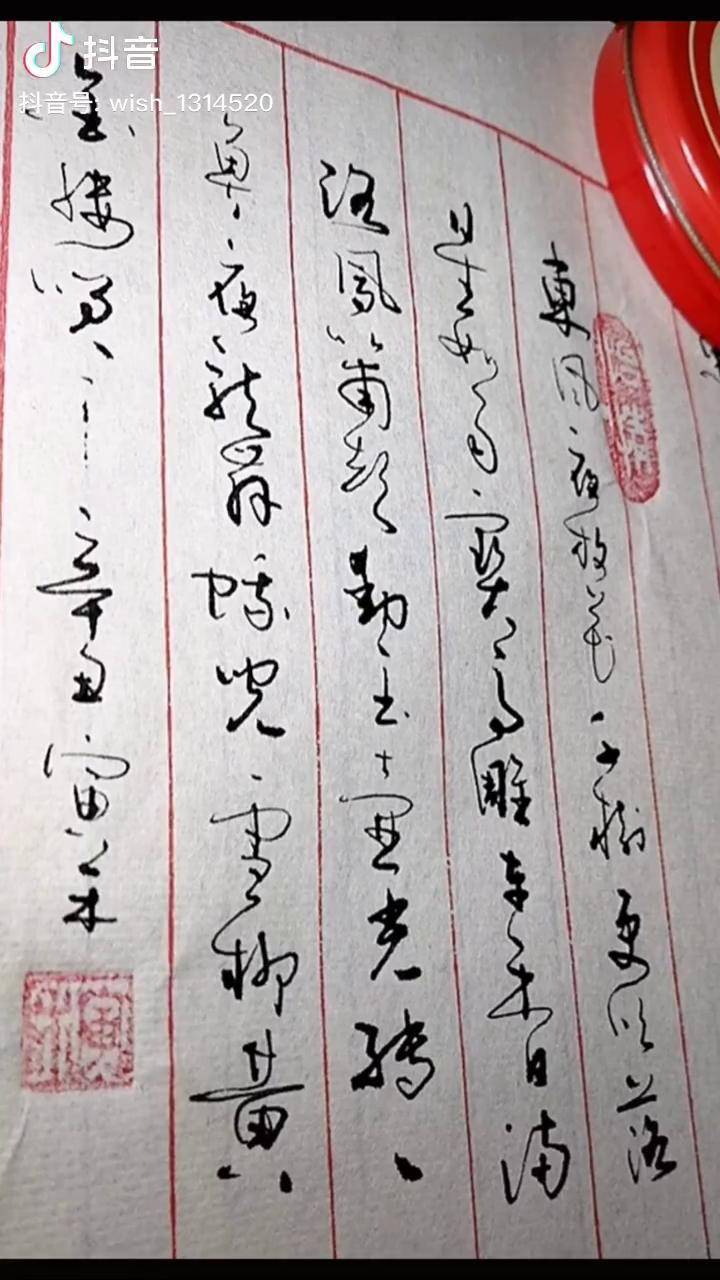 抖音
抖音号: wish_1314520
東風夜放花千樹更吹落
星如雨寶馬雕車香滿
路鳳簫聲動玉壺光轉一
魚夜龍舞蛾兒雪柳黃
金縷笑……辛丑寅木